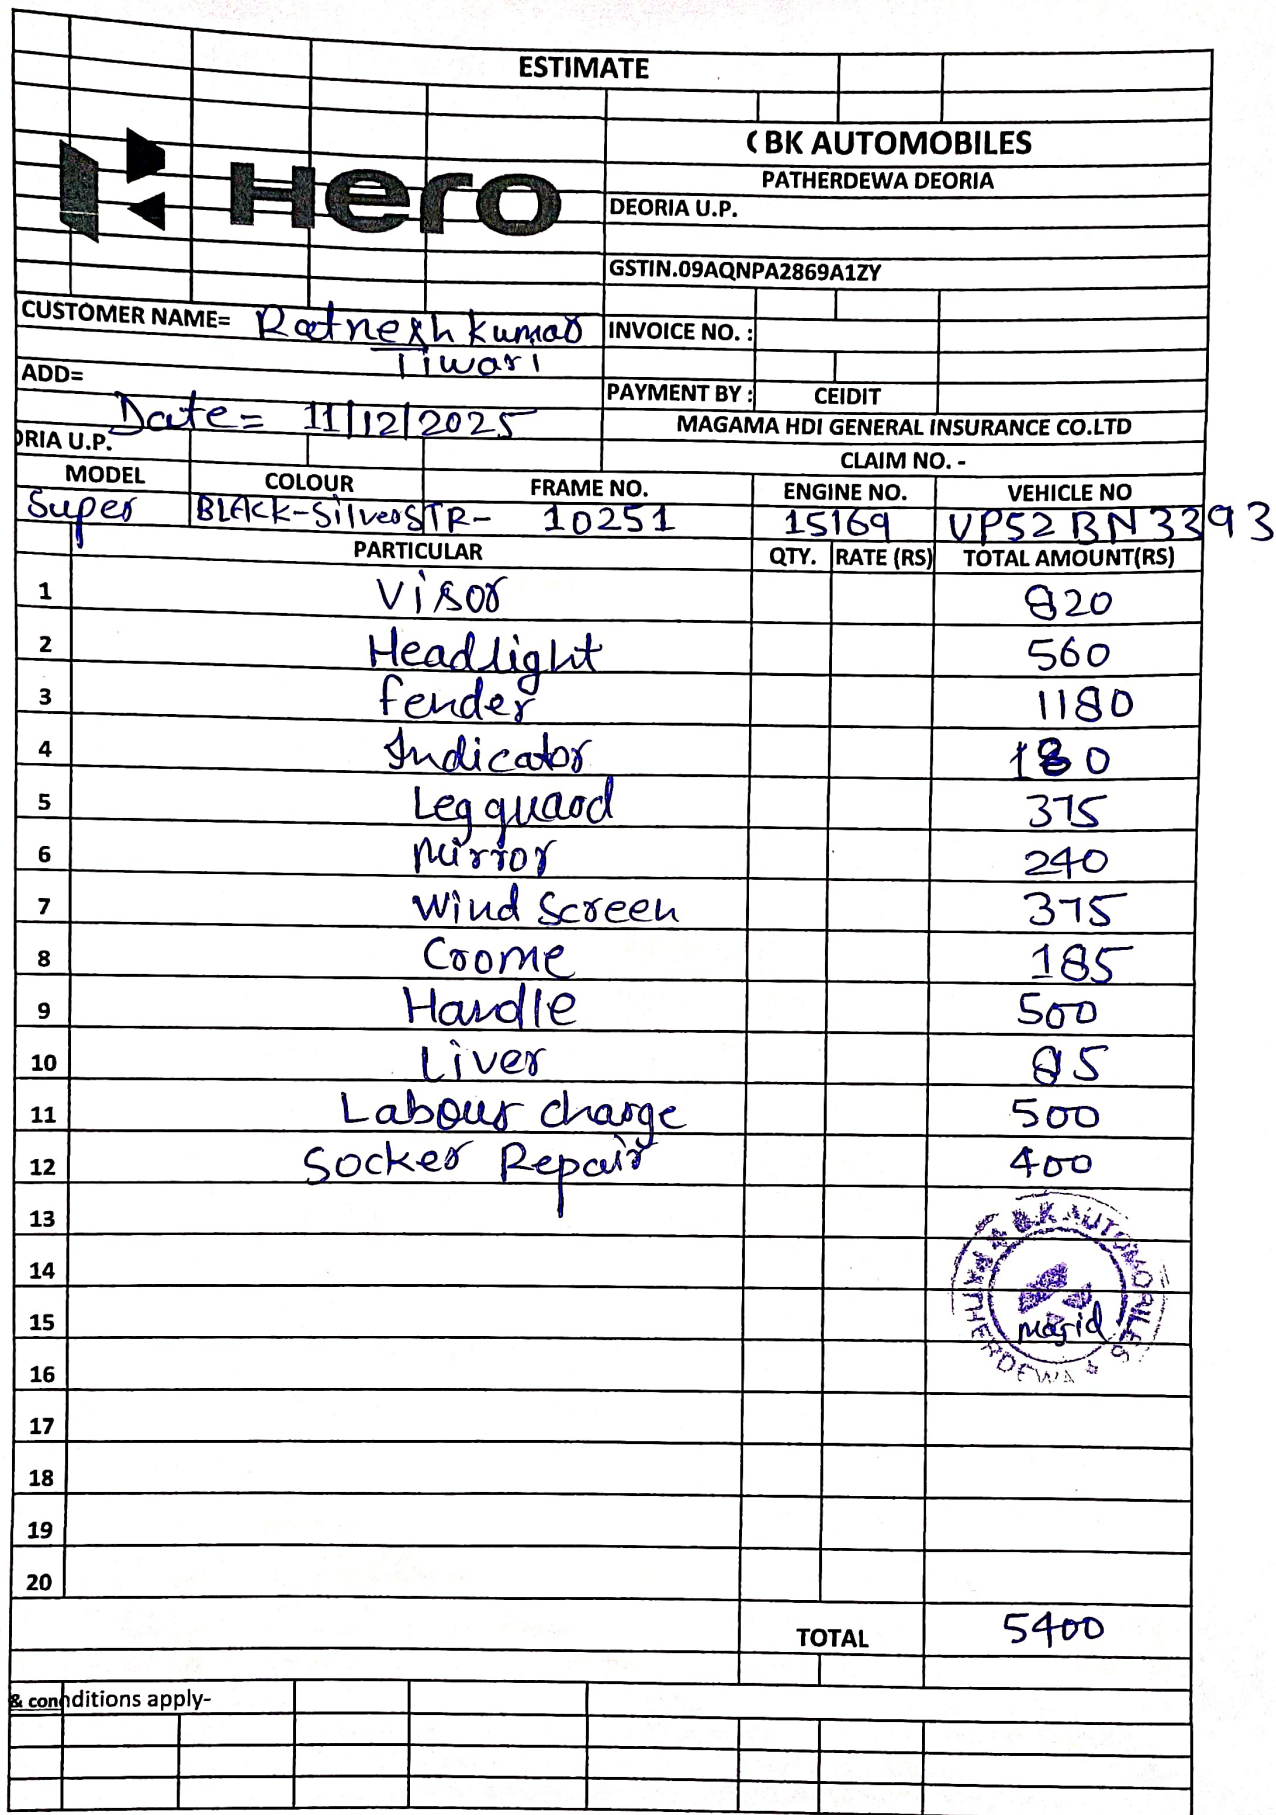 ESTIMATE
Hero
( BK AUTOMOBILES
PATHERDEWA DEORIA
DEORIA U.P.
GSTIN.09AQNPA2869A1ZY
CUSTOMER NAME= Ratnesh Kumar
Tiwari
INVOICE NO. :
ADD=
PAYMENT BY : CEIDIT
Date= 11/12/2025
MAGAMA HDI GENERAL INSURANCE CO.LTD
ORIA U.P.
CLAIM NO. -
MODEL COLOUR FRAME NO. ENGINE NO. VEHICLE NO
Super BLACK-Silver STR- 10251 15169 UP52 BN 3393
PARTICULAR QTY. RATE (RS) TOTAL AMOUNT(RS)
1 Visor 820
2 Headlight 560
3 fender 1180
4 Indicator 180
5 Leg guard 375
6 Mirror 240
7 Wind Screen 375
8 Crome 185
9 Handle 500
10 Liver 85
11 Labour charge 500
12 Socker Repair 400
13
14
15
16
17
18
19
20
B.K AUTOMOBILES
PATHERDEWA
Majid
TOTAL 5400
& conditions apply-